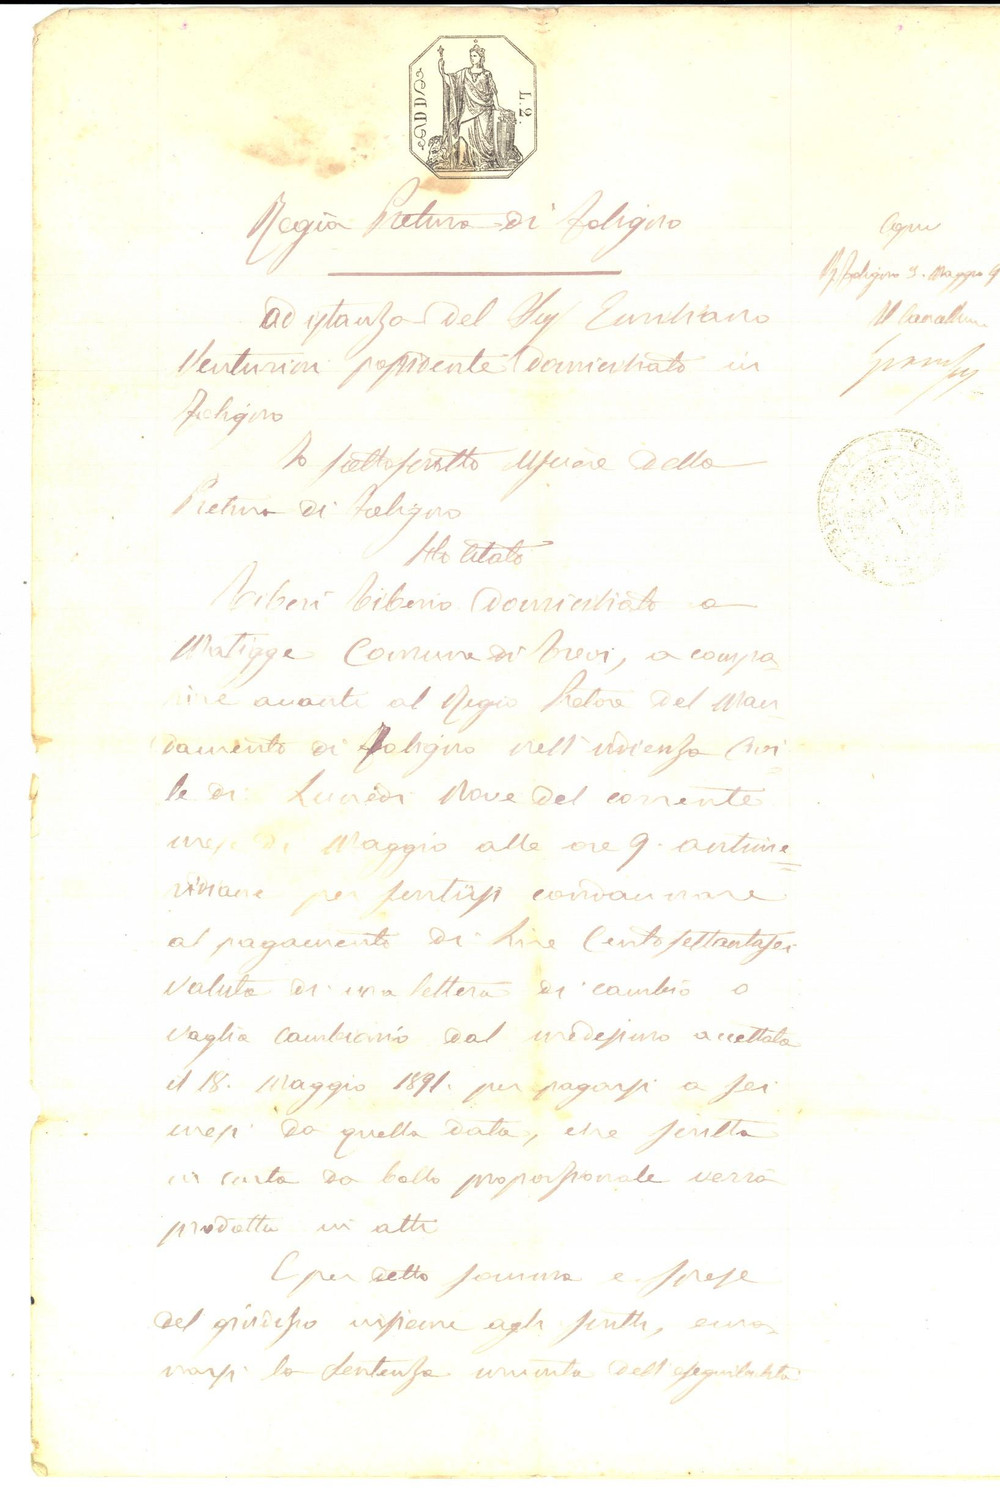 L. 2.
Regia Pretura di Foligno
Copia
Foligno 3. Maggio 9
Il Cancelliere
ad istanza del Sig Emiliano
Venturini possidente domiciliato in
Foligno
Io sottoscritto Usciere della
Pretura di Foligno
Ho Citato
Tiberi Tiberio domiciliato a
Matigge Comune di Trevi, a compa-
rire avanti al Regio Pretore del Man-
damento di Foligno nell'udienza Civi
le di Lunedi Nove del corrente
mese di Maggio alle ore 9. antime=
ridiane per sentirsi condannare
al pagamento di Lire Centosettantasei
valuta di una lettera di cambio o
vaglia cambiario dal medesimo accettata
il 18. Maggio 1891. per pagarsi a sei
mesi da quella data, che scritta
in carta da bollo proporzionale verrà
prodotta in atti
E per detta somma e spese
del giudizio insieme agli frutti, ema-
narsi la sentenza munita dell'